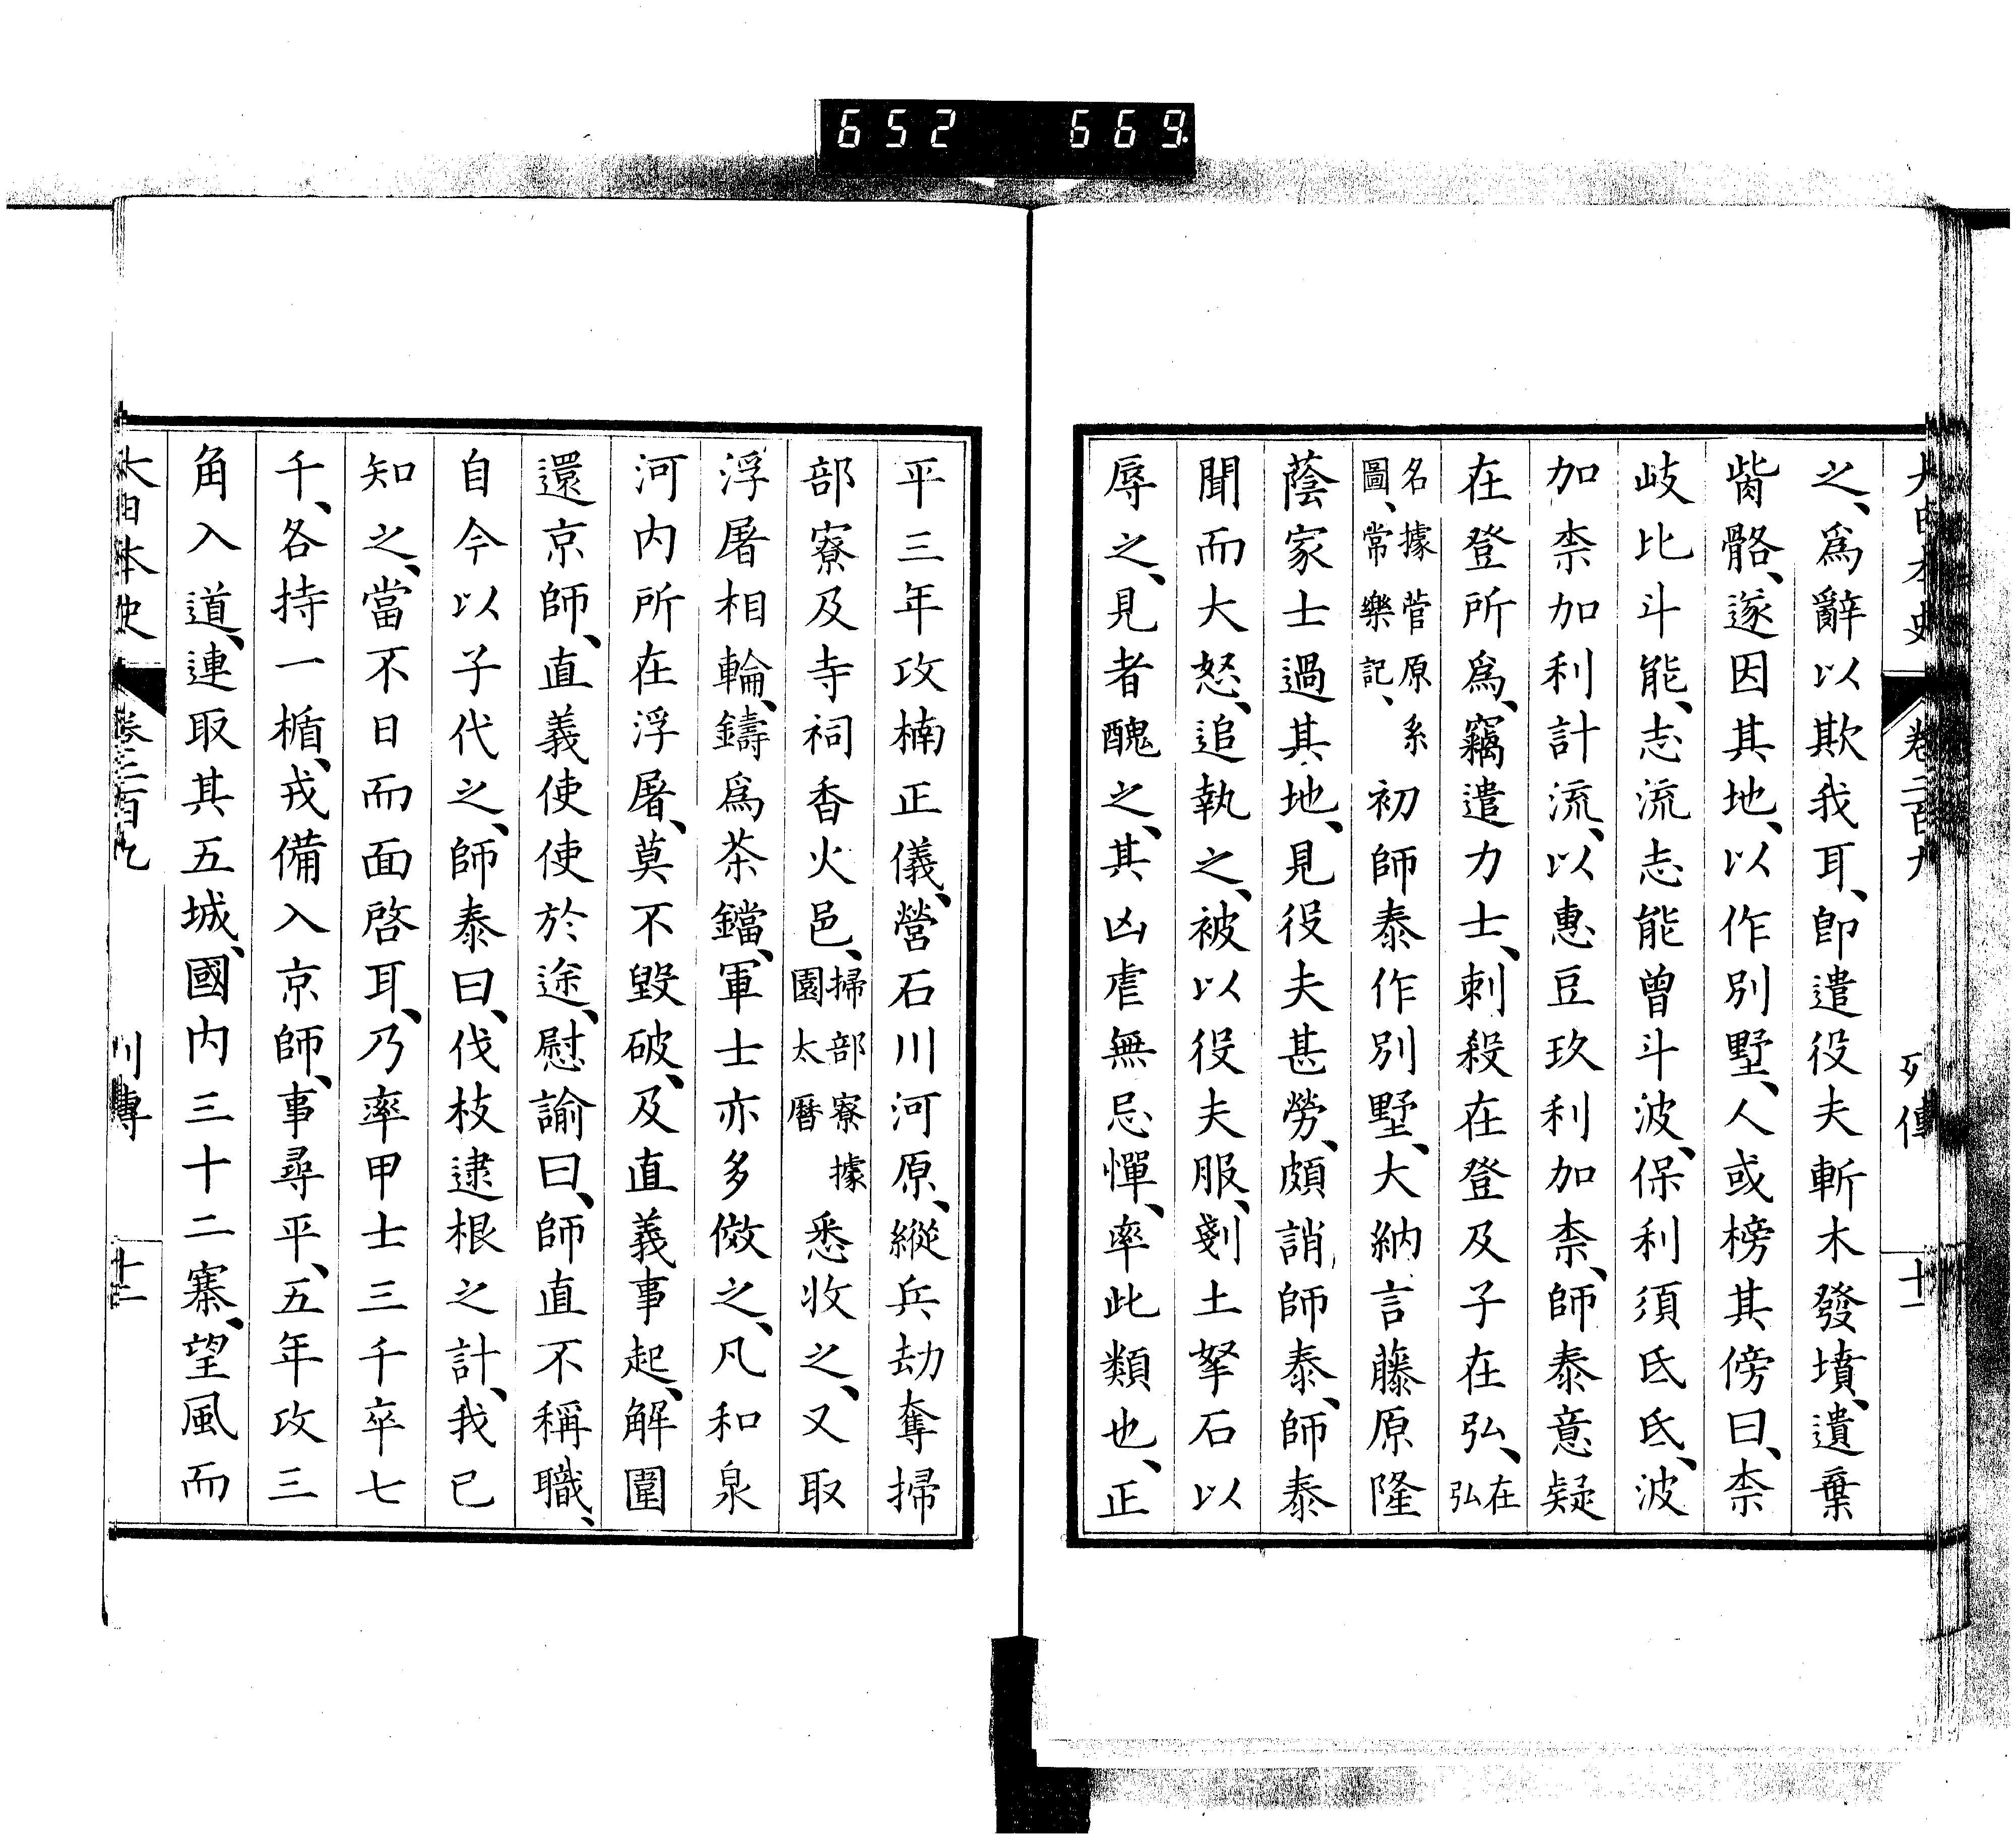 652 669
大日本史 卷二百九 列傳 十一
之、爲辭以欺我耳、卽遣役夫斬木發墳、遺棄
胔骼、遂因其地、以作別墅、人或榜其傍曰、柰
岐比斗能、志流志能曾斗波、保利須氐氐、波
加柰加利計流、以惠豆玖利加柰、師泰意疑
在登所爲、竊遣力士、刺殺在登及子在弘、在弘
名據菅原系圖、常樂記、初師泰作別墅、大納言藤原隆
蔭家士過其地、見役夫甚勞、頗誚師泰、師泰
聞而大怒、追執之、被以役夫服、剗土拏石以
辱之、見者醜之、其凶虐無忌憚、率此類也、正
平三年攻楠正儀、營石川河原、縱兵劫奪掃
部寮及寺祠香火邑、掃部寮據園太曆悉收之、又取
浮屠相輪、鑄爲茶鐺、軍士亦多倣之、凡和泉
河内所在浮屠、莫不毀破、及直義事起、解圍
還京師、直義使使於途、慰諭曰、師直不稱職、
自今以子代之、師泰曰、伐枝逮根之計、我已
知之、當不日而面啓耳、乃率甲士三千卒七
千、各持一楯、戎備入京師、事尋平、五年攻三
角入道、連取其五城、國内三十二寨、望風而
大日本史 卷二百九 列傳 十二